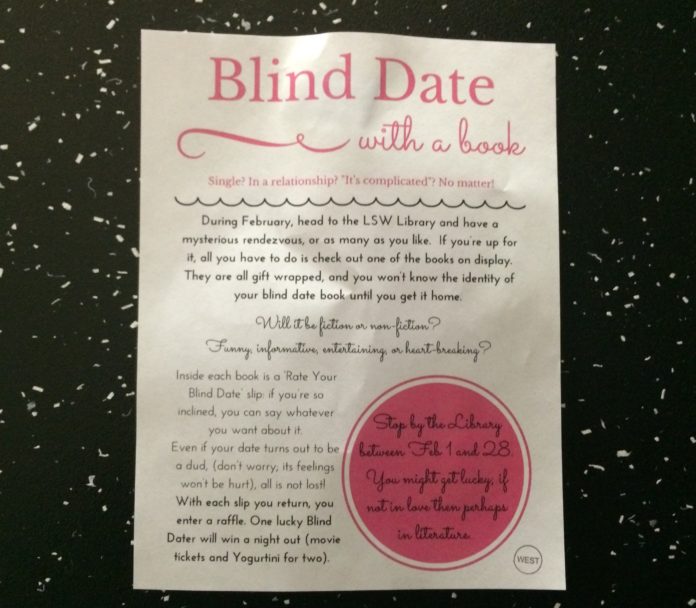 Blind Date
with a book
Single? In a relationship? "It's complicated"? No matter!
During February, head to the LSW Library and have a
mysterious rendezvous, or as many as you like. If you're up for
it, all you have to do is check out one of the books on display.
They are all gift wrapped, and you won't know the identity of
your blind date book until you get it home.
Will it be fiction or non-fiction?
Funny, informative, entertaining, or heart-breaking?
Inside each book is a 'Rate Your
Blind Date' slip: if you're so
inclined, you can say whatever
you want about it.
Even if your date turns out to be
a dud, (don't worry, its feelings
won't be hurt), all is not lost!
With each slip you return, you
enter a raffle. One lucky Blind
Dater will win a night out (movie
tickets and Yogurtini for two).
Stop by the Library
between Feb 1 and 28.
You might get lucky, if
not in love then perhaps
in literature.
WEST